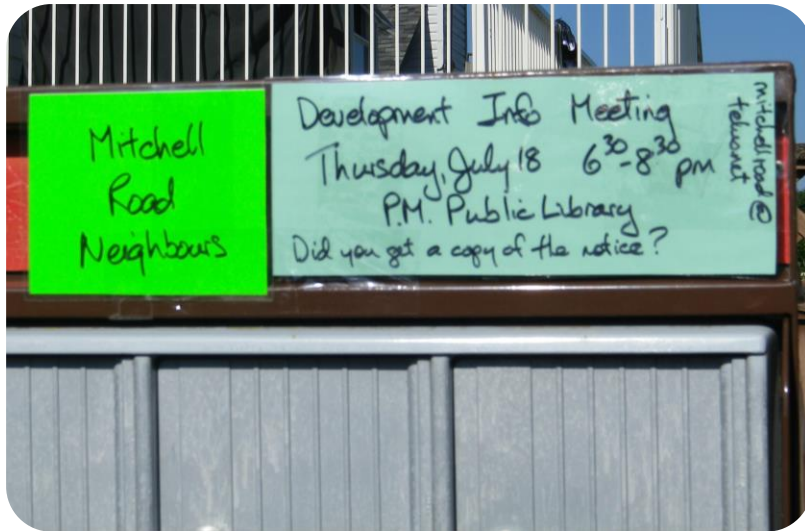 Mitchell
Road
Neighbours
Development Info Meeting
Thursday, July 18 6³⁰-8³⁰ pm
P.M. Public Library
Did you get a copy of the notice?
mitchellroad@
telus.net